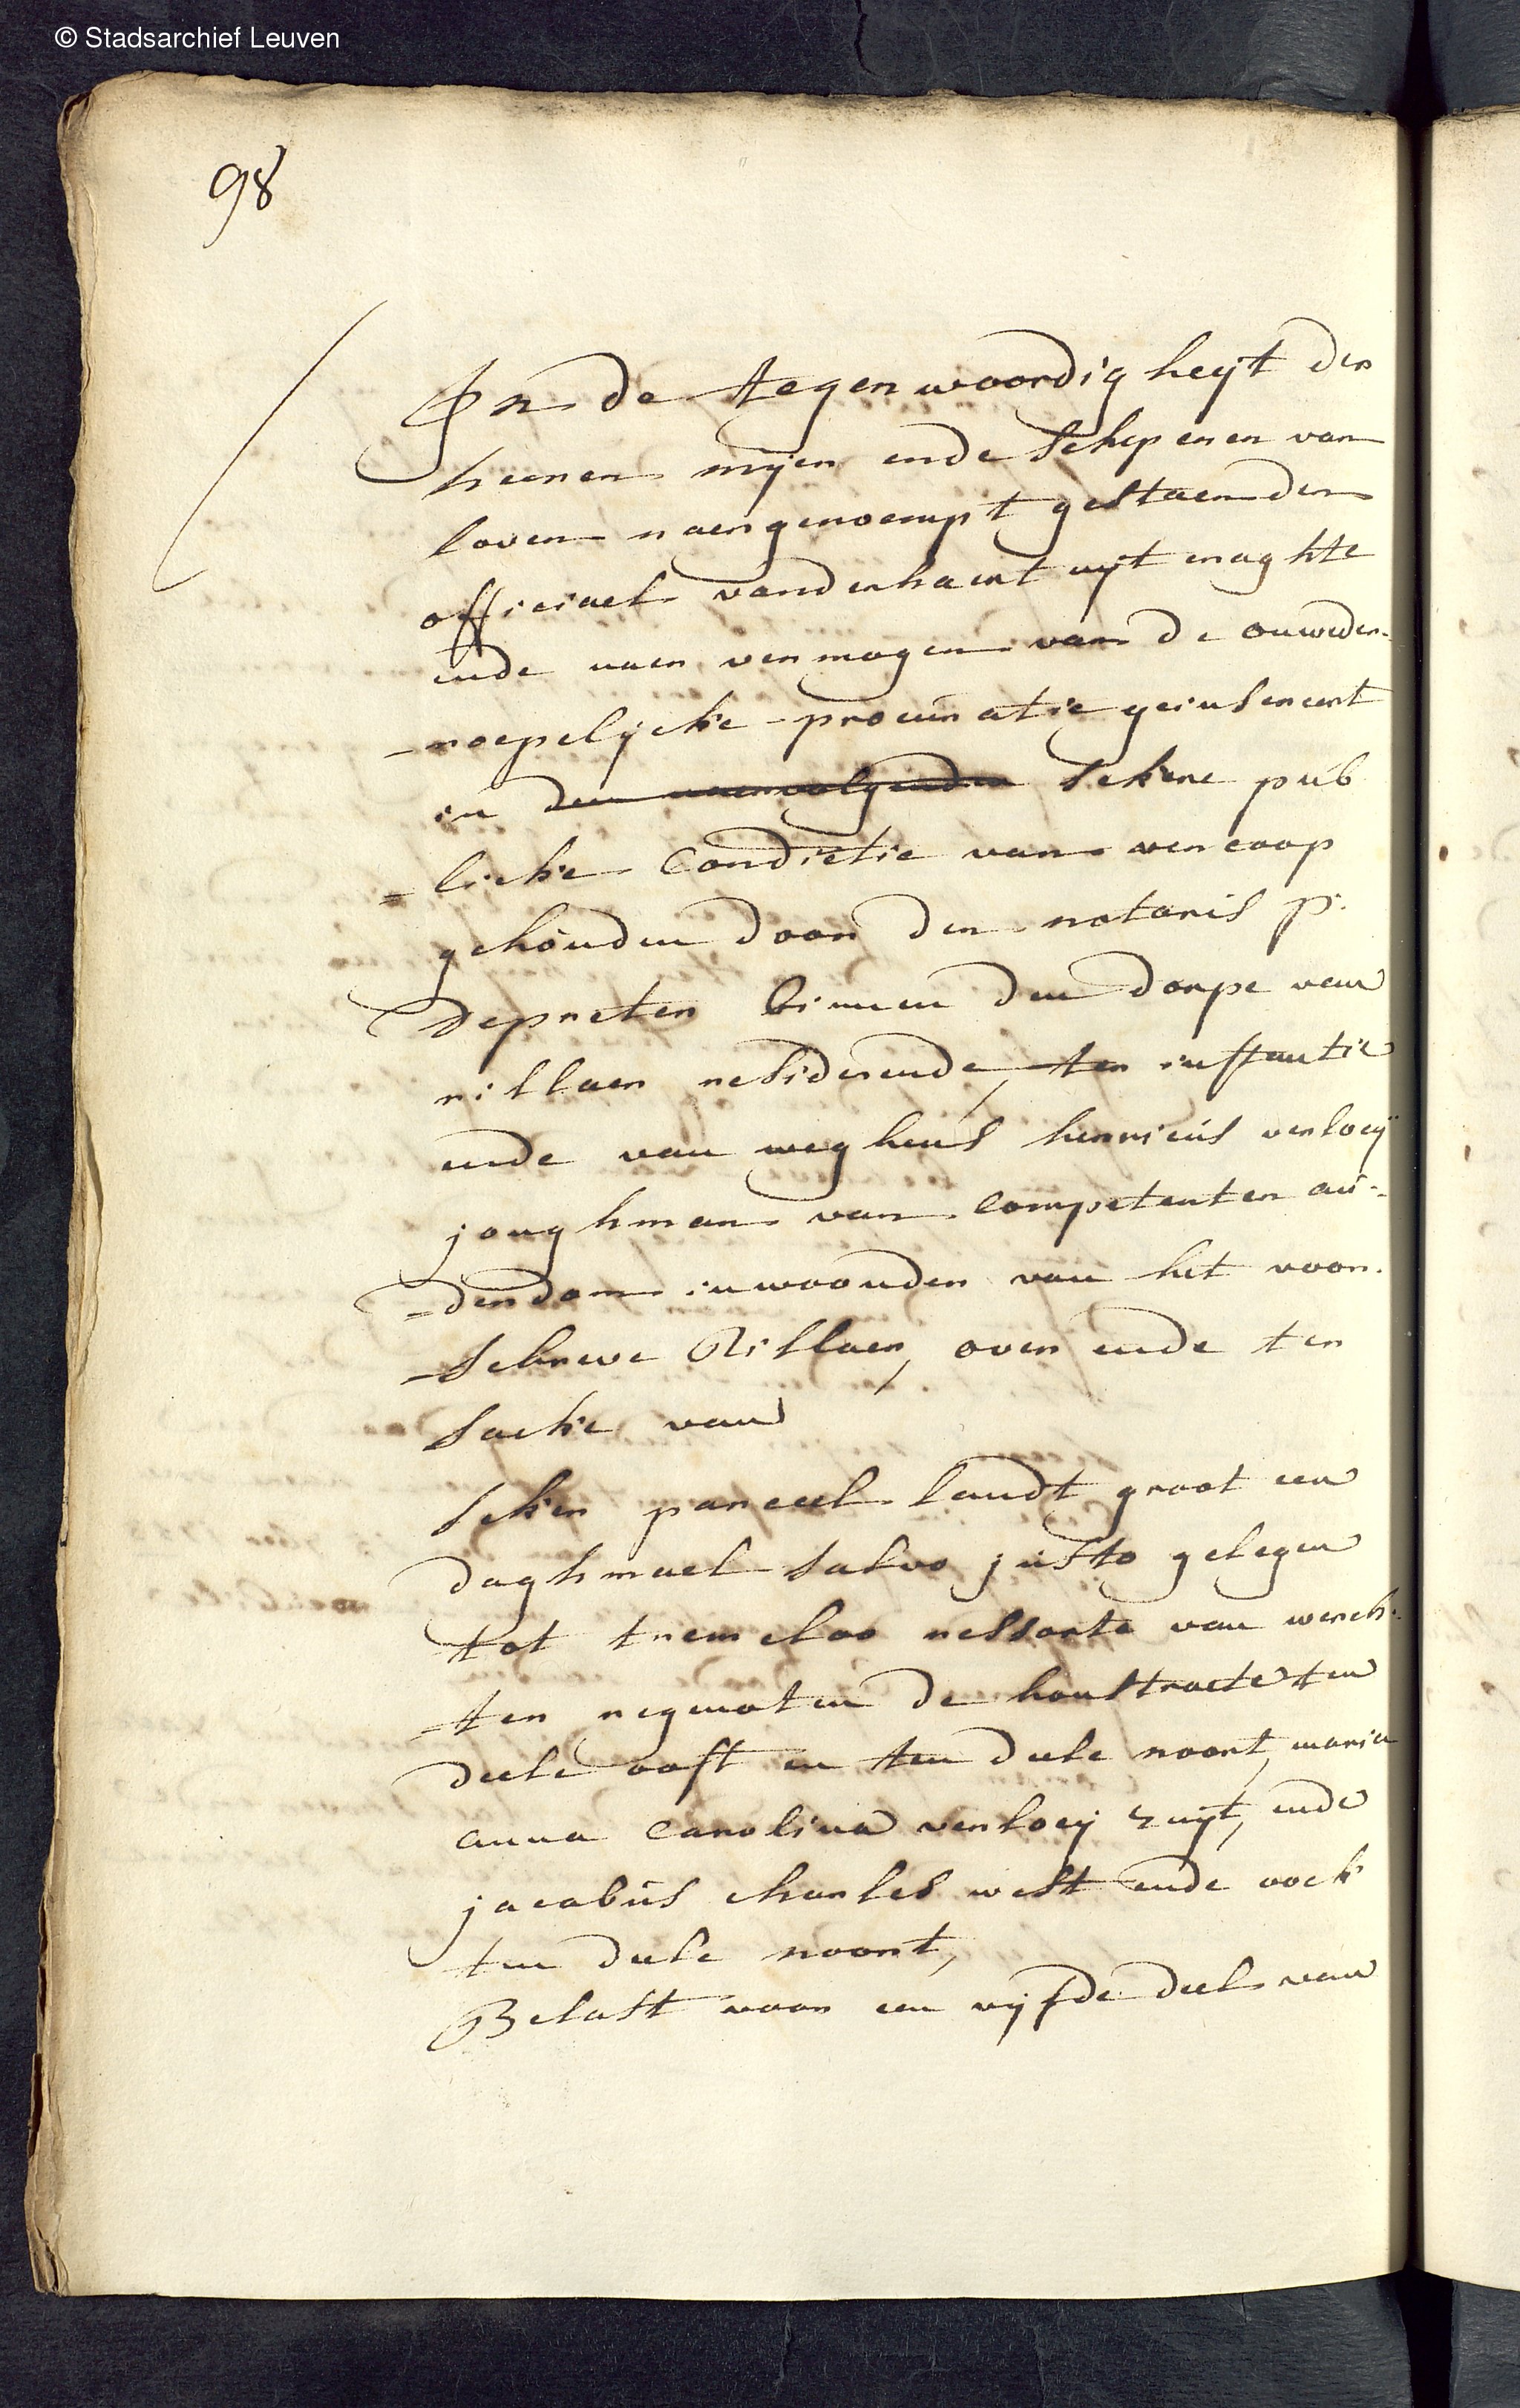 © Stadsarchief Leuven
98
In de tegenwoordigheyt der
heeren mijer ende schepenen van
loven naergenoempt gestaen den
officiael vanderhaert uyt craghte
ende naer vermogen van de onweder-
-roepelijcke procuratie geinsereert
in den naervolgenden sekere pub
=licke Condictie van vercoop
gehouden door den notaris p.
depreter binnen den dorpe van
rillaer residerende, ter instantie
ende van weghens henricus verloeÿ
jonghman van competenten au-
=derdom inwoonder van het voor-
-schreve Rillaer, over ende ter
saeke van
seker parceel landt groot een
daghmael salvo justo gelegen
tot tremeloo ressorte van werch-
-ter regenoten de houstraete ten
deele oost en ten deele noort, maria
anna Carolina verloey zuyt, ende
jacobus charles west ende oock
ten deele noort,
Belast voor een vijfde deel van